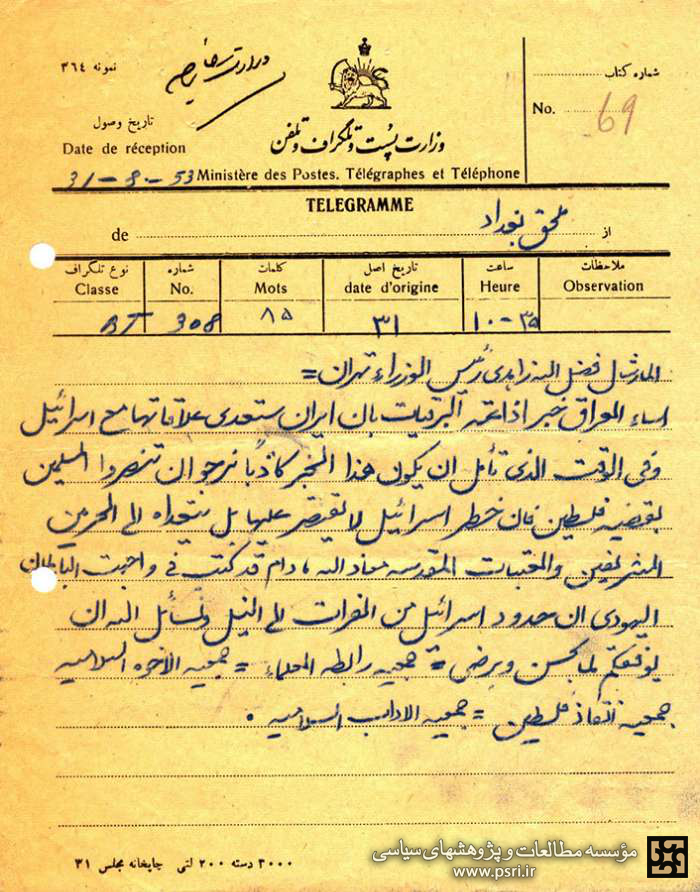 نمونه ۳۶۴
وزارت خارجه
شماره کتاب
No. 69
تاریخ وصول
وزارت پست و تلگراف و تلفن
Date de réception
31-8-53 Ministère des Postes. Télégraphes et Téléphone
TELEGRAMME
de ملحق بغداد از
نوع تلگراف شماره کلمات تاریخ اصل ساعت ملاحظات
Classe No. Mots date d'origine Heure Observation
BT 308 ۸۵ ۳۱ ۱۰-۳۵
المارشال فضل الله زاهدی رئیس الوزراء تهران =
اساء العراق خبر اذاعته البرقیات بان ایران ستعدی علاقاتها مع اسرائیل
وفی الوقت الذی نأمل ان یکون هذا الخبر کاذبا نرجو ان تنصروا المسلمین
بقضیه فلسطین فان خطر اسرائیل لا یقتصر علیها بل یتعداه الی الحرمین
الشریفین والعتبات المقدسه معاذ الله قد کتبت فی
الیهودی ان حدود اسرائیل من الفرات الی النیل ونسأل الله ان
یوفقکم لما یحسن ویرضی = جمعیه رابطه العلماء = جمعیه الاخوه السلامیه
جمعیه انقاذ فلسطین = جمعیه الاداب السلامیه .
۳۰۰۰ دسته ۲۰۰ لتی چاپخانه مجلس ۳۱
مؤسسه مطالعات و پژوهشهای سیاسی
www.psri.ir